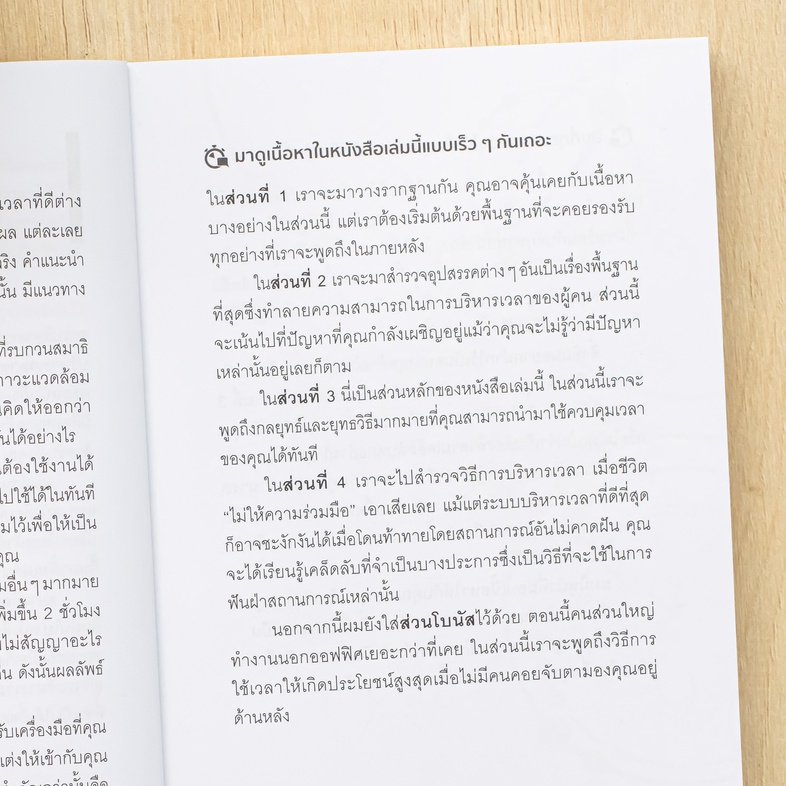 เวลาที่ดีต่าง
ผล แต่ละเลย
จริง คำแนะนำ
นั้น มีแนวทาง
ที่รบกวนสมาธิ
ภาวะแวดล้อม
คิดให้ออกว่า
นได้อย่างไร
ต้องใช้งานได้
ไปใช้ได้ในทันที
มไว้เพื่อให้เป็น
คุณ
มอื่น ๆ มากมาย
พิ่มขึ้น 2 ชั่วโมง
ไม่สัญญาอะไร
ดังนั้นผลลัพธ์
รับเครื่องมือที่คุณ
แต่งให้เข้ากับคุณ
มาดูเนื้อหาในหนังสือเล่มนี้แบบเร็ว ๆ กันเถอะ
ในส่วนที่ 1 เราจะมาวางรากฐานกัน คุณอาจคุ้นเคยกับเนื้อหา
บางอย่างในส่วนนี้ แต่เราต้องเริ่มต้นด้วยพื้นฐานที่จะคอยรองรับ
ทุกอย่างที่เราจะพูดถึงในภายหลัง
ในส่วนที่ 2 เราจะมาสำรวจอุปสรรคต่าง ๆ อันเป็นเรื่องพื้นฐาน
ที่สุดซึ่งทำลายความสามารถในการบริหารเวลาของผู้คน ส่วนนี้
จะเน้นไปที่ปัญหาที่คุณกำลังเผชิญอยู่แม้ว่าคุณจะไม่รู้ว่ามีปัญหา
เหล่านั้นอยู่เลยก็ตาม
ในส่วนที่ 3 นี่เป็นส่วนหลักของหนังสือเล่มนี้ ในส่วนนี้เราจะ
พูดถึงกลยุทธ์และยุทธวิธีมากมายที่คุณสามารถนำมาใช้ควบคุมเวลา
ของคุณได้ทันที
ในส่วนที่ 4 เราจะไปสำรวจวิธีการบริหารเวลา เมื่อชีวิต
“ไม่ให้ความร่วมมือ” เอาเสียเลย แม้แต่ระบบบริหารเวลาที่ดีที่สุด
ก็อาจชะงักงันได้เมื่อโดนท้าทายโดยสถานการณ์อันไม่คาดฝัน คุณ
จะได้เรียนรู้เคล็ดลับที่จำเป็นบางประการซึ่งเป็นวิธีที่จะใช้ในการ
ฟันฝ่าสถานการณ์เหล่านั้น
นอกจากนี้ผมยังใส่ส่วนโบนัสไว้ด้วย ตอนนี้คนส่วนใหญ่
ทำงานนอกออฟฟิศเยอะกว่าที่เคย ในส่วนนี้เราจะพูดถึงวิธีการ
ใช้เวลาให้เกิดประโยชน์สูงสุดเมื่อไม่มีคนคอยจับตามองคุณอยู่
ด้านหลัง